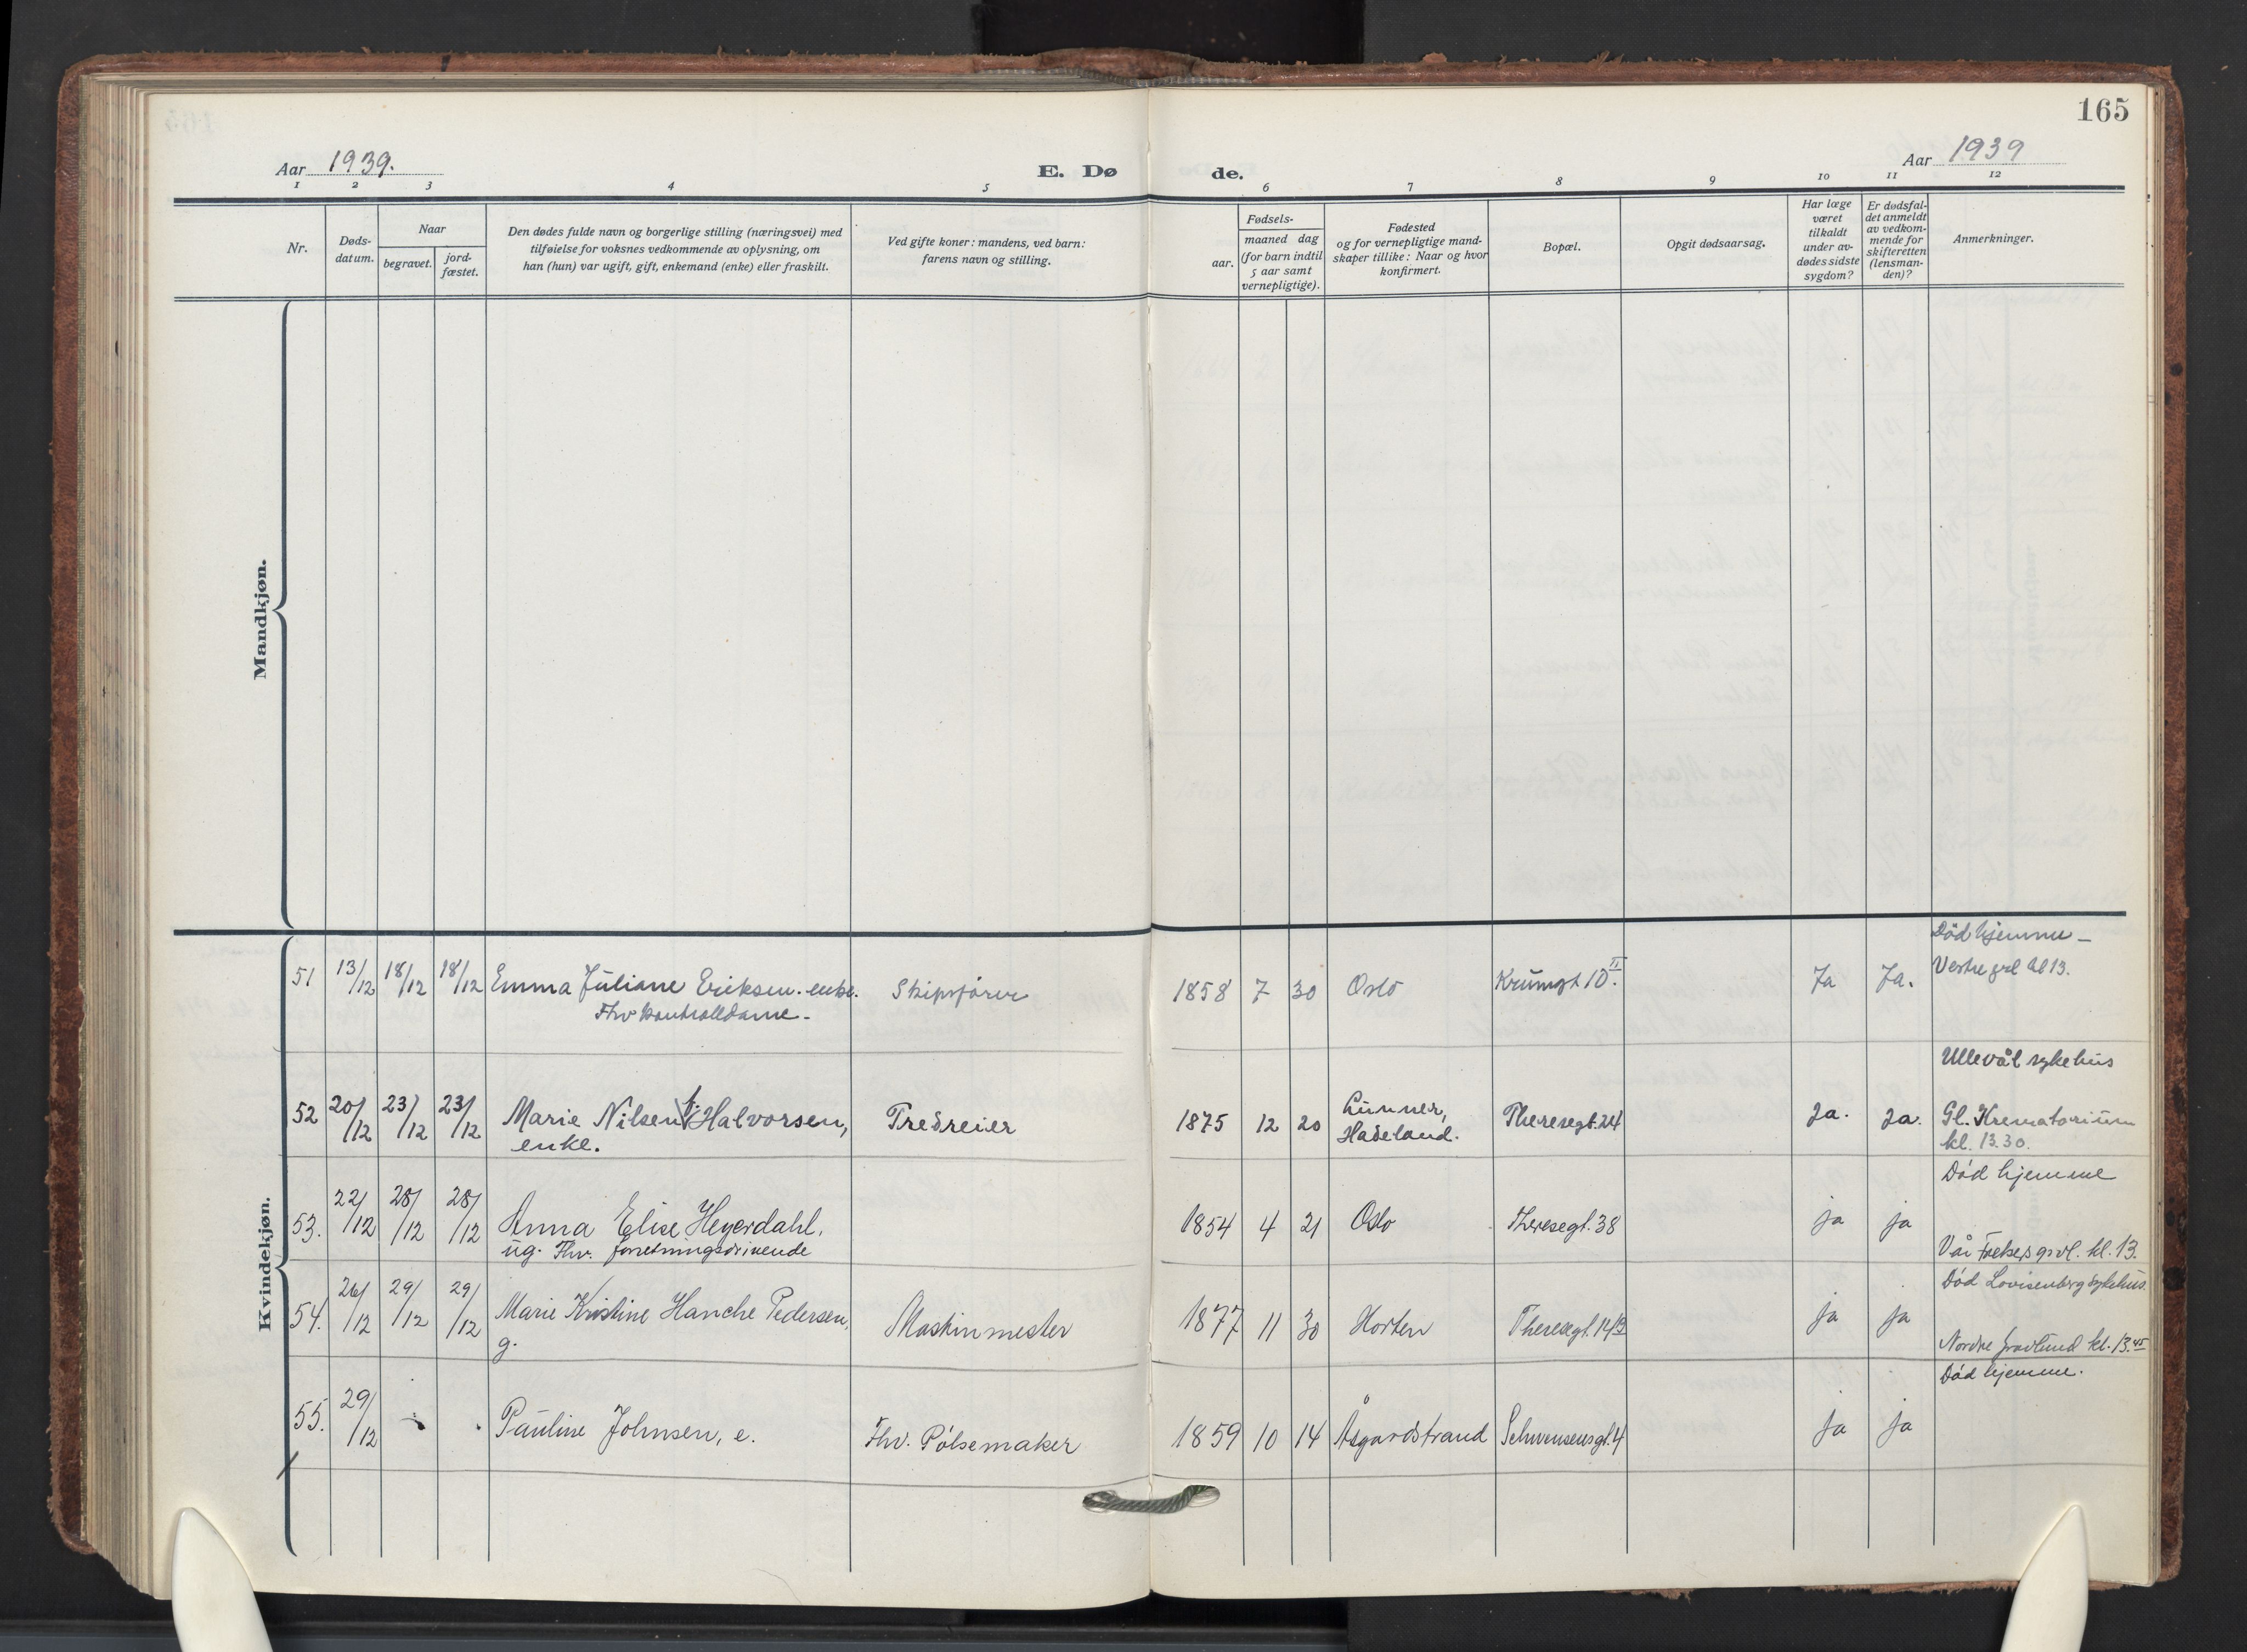 165
Aar 1939.
E. Dø de.
Aar 1939
1 2 3 4 5 6 7 8 9 10 11 12
Nr.
Døds-
datum.
Naar
begravet.
jord-
fæstet.
Den dødes fulde navn og borgerlige stilling (næringsvei) med
tilføielse for voksnes vedkommende av oplysning, om
han (hun) var ugift, gift, enkemand (enke) eller fraskilt.
Ved gifte koner: mandens, ved barn:
farens navn og stilling.
Fødsels-
aar.
maaned dag
(for barn indtil
5 aar samt
vernepligtige).
Fødested
og for vernepligtige mand-
skaper tillike: Naar og hvor
konfirmert.
Bopæl.
Opgit dødsaarsag.
Har læge
været
tilkaldt
under av-
dødes sidste
sygdom?
Er dødsfal-
det anmeldt
av vedkom-
mende for
skifteretten
(lensman-
den)?
Anmerkninger.
Mandkjøn.
Kvindekjøn.
Død hjemme –
51 13/12 18/12 18/12 Emma Juliane Eriksen. enke. Skipsfører 1858 7 30 Oslo Krumgt 10 II. Ja Ja. Vestre grl kl 13.
Fhv kontrolldame.
Ullevål sykehus
52 20/12 23/12 23/12 Marie Nilsen f. Halvorsen, Tredreier 1875 12 20 Lunner, Theresegt. 24 Ja. Ja. Gl. Krematorium
enke. Hadeland. kl. 13.30.
Död hjemme
53. 22/12 28/12 28/12 Anna Elise Heyerdahl. 1854 4 21 Oslo Theresegt. 38 ja ja
ug. Fhv. forretningsdrivende Vår Frelsers grvl. kl. 13.
Död Lovisenberg sykehus.
54. 26/12 29/12 29/12 Marie Kristine Hanche Pedersen, Maskinmester 1877 11 30 Horten Theresegt. 14/3 ja ja
g. Nordre gravlund kl. 13.45
Död hjemme.
55. 29/12 Pauline Johnsen, e. Fhv. Pölsemaker 1859 10 14 Åsgardstrand Schwensensgt. 4 ja ja